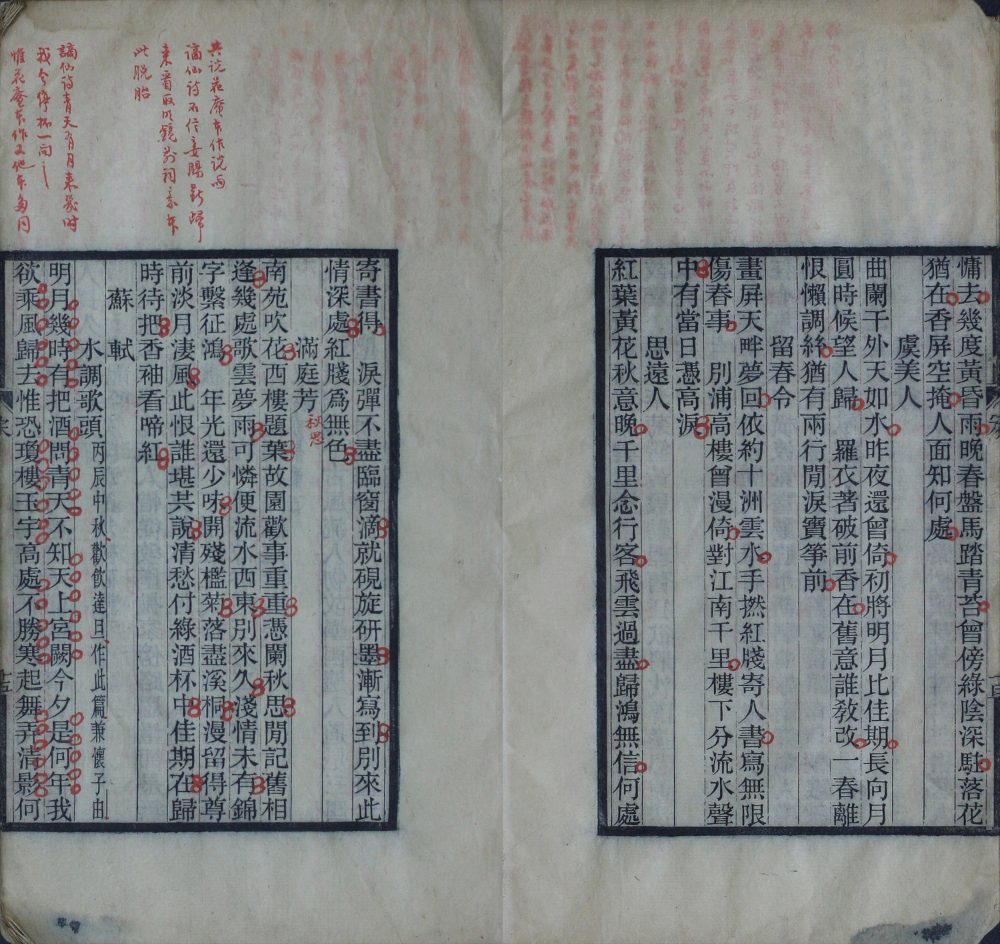 慵去幾度黃昏雨晚春盤馬踏青苔曾傍綠陰深駐落花
猶在香屏空掩人面知何處
虞美人
曲闌干外天如水昨夜還曾倚初將明月比佳期長向月
圓時候望人歸 羅衣著破前香在舊意誰敎改一春離
恨懶調絲猶有兩行閒淚寶筝前
留春令
畫屏天畔夢回依約十洲雲水手撚紅牋寄人書寫無限
傷春事 別浦高樓曾漫倚對江南千里樓下分流水聲
中有當日憑高淚
思遠人
紅葉黃花秋意晚千里念行客飛雲過盡歸鴻無信何處
寄書得 淚彈不盡臨窗滴就硯旋研墨漸寫到別來此
情深處紅牋爲無色
滿庭芳 秋思
南苑吹花西樓題葉故園歡事重重憑闌秋思閒記舊相
逢幾處歌雲夢雨可憐便流水西東別來久淺情未有錦
字繫征鴻 年光還少味開殘檻菊落盡溪桐漫留得尊
前淡月淒風此恨誰堪共說清愁付綠酒杯中佳期在歸
時待把香袖看啼紅
蘇軾
水調歌頭 丙辰中秋歡飲達旦作此篇兼懷子由
明月幾時有把酒問青天不知天上宮闕今夕是何年我
欲乘風歸去惟恐瓊樓玉宇高處不勝寒起舞弄清影何
共說花庵本作說與
謫仙诗不信妾腸斷歸
来看取明鏡前词意本
此脫胎
謫仙诗青天有月来幾时
我今停杯一问之
惟花庵本作又他本多同